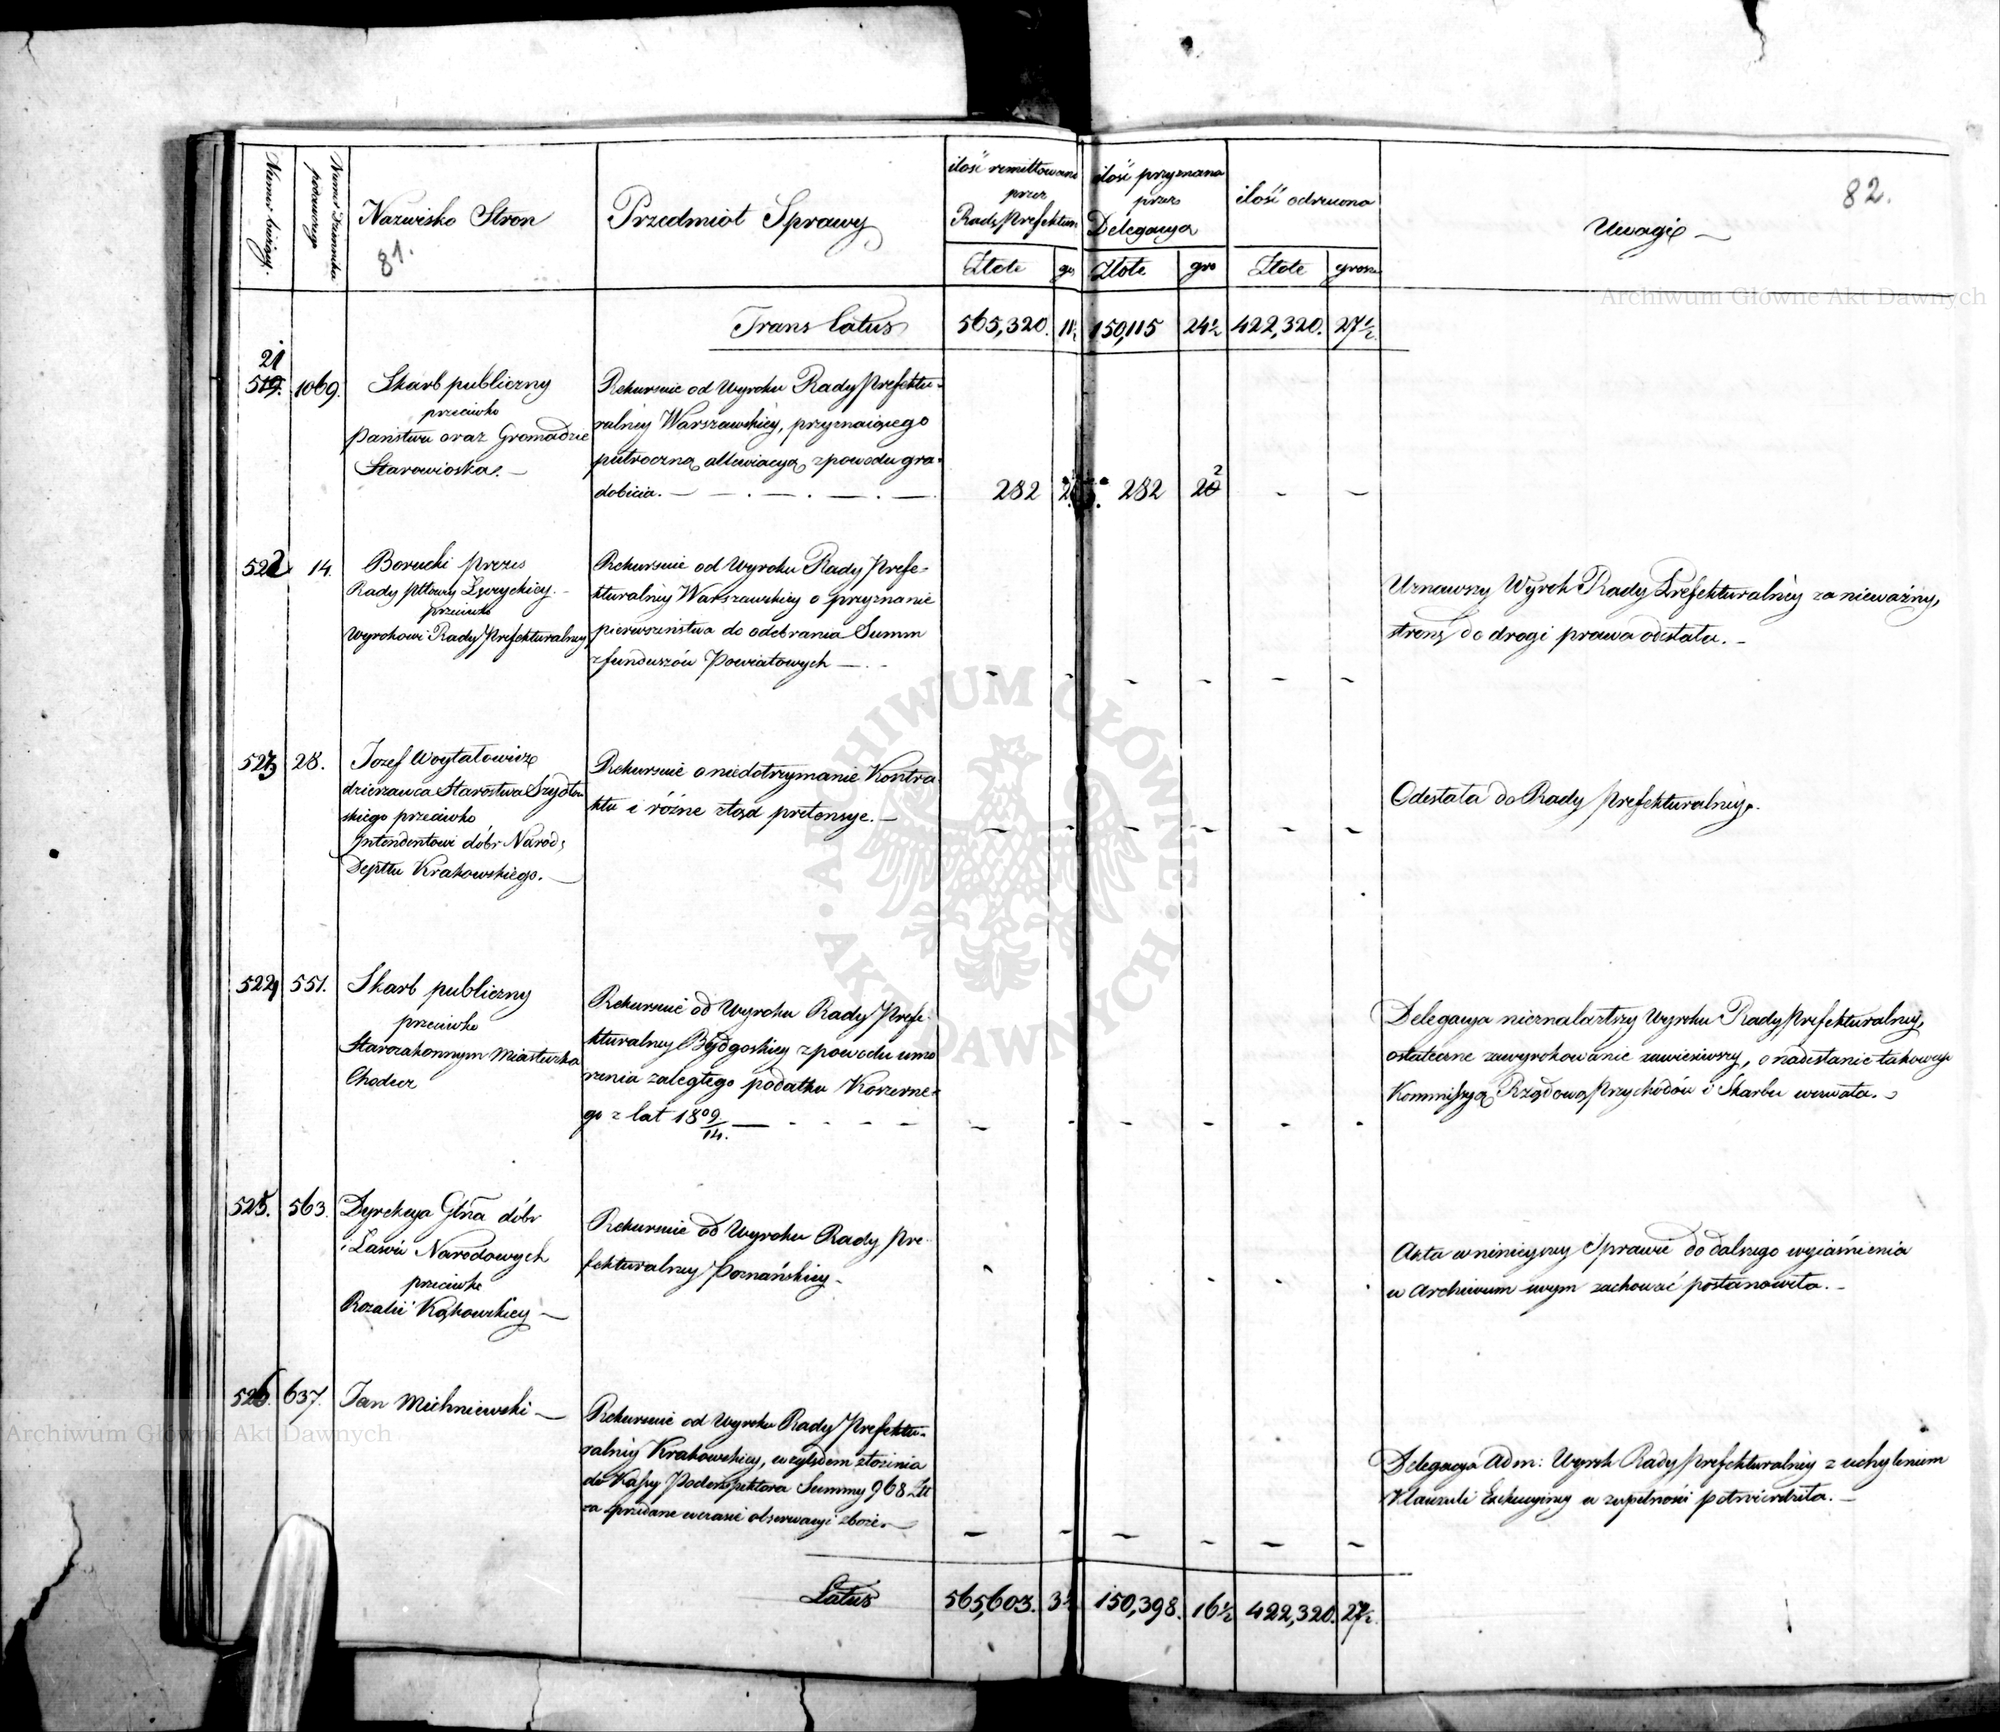 Numer bieżący.
Numer Dziennika podawczego
Nazwisko Stron
81.
Przedmiot Sprawy
ilość remittowana
przez
Radę Prefektur:
Złote
gr
ilość przyznana
przez
Delegacyą
Złote
gro
ilość odrzucona
Złote
grosze
Uwagi —
82.
Archiwum Główne Akt Dawnych
Trans latus 565,320. 11½ 150,115 24½ 422,320. 27½.
21
519. 1069.
Skarb publiczny
przeciwko
Państwu oraz Gromadzie
Starowioska. —
Rekursuie od Wyroku Rady Prefektu-
ralney Warszawskiey, przyznaiącego
pułroczną allewiacyą z powodu gra-
dobicia. —
282
282
2
20
522 14.
Borucki prezes
Rady
przeciwko
Wyrokowi Rady Prefekturalney
Rekursuie od Wyroku Rady Prefe-
kturalney Warszawskiey o przyznanie
pierwszeństwa do odebrania Summ
z funduszów Powiatowych —
Uznawszy Wyrok Rady Prefekturalney za nieważny,
stronę do drogi prawa odesłała. —
523 28.
Jozef Woytalowicz
dzierzawca Starostwa Szydłow
skiego przeciwko
Intendentowi dóbr Narod:
Depttu Krakowskiego. —
Rekursuie o niedotrzymanie Kontra
ktu i różne ztąd pretensye. —
Odesłała do Rady Prefekturalney.
524 551.
Skarb publiczny
przeciwko
Starozakonnym Miasteczka
Chodecz
Rekursuie od Wyroku Rady Prefe-
kturalney Bydgoskiey z powodu umo
rzenia zaległego podatku Koszerne-
go z lat 1809/14. —
Delegacya nieznalazłszy Wyroku Rady Prefekturalney,
ostateczne zawyrokowanie zawiesiwszy, o nadesłanie takowego
Kommissyą Rządową Przychodów i Skarbu wezwała. —
525. 563.
Dyrekcya Głña dóbr
i Lasów Narodowych
przeciwko
Rozalii Kąkowskiey —
Rekursuie od Wyroku Rady Pre-
fekturalney Poznańskiey —
Akta w ninieyszey Sprawie do dalszego wyiaśnienia
w Archiwum swym zachować postanowiła. —
526. 637.
Jan Michniewski —
Rekursuie od Wyroku Rady Prefektu-
ralney Krakowskiey, względem złożenia
do Kassy Podinspektora Summy 968 Złł
za przedane w czasie obserwacyi zboże. —
Delegacya Adm: Wyrok Rady Prefekturalney z uchyleniem
Klauzuli Exekucyiney w zupełności potwierdziła. —
Archiwum Główne Akt Dawnych
Latus 565,603. 3½ 150,398. 16½ 422,320. 27½.
ARCHIWUM GŁÓWNE
AKT DAWNYCH